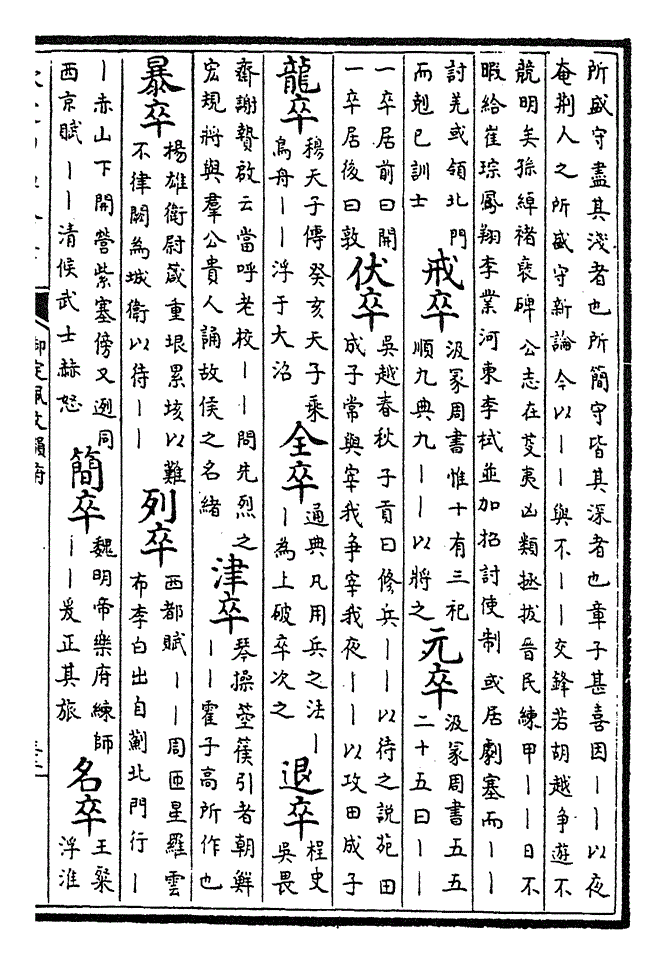 所盛守盡其淺者也所簡守皆其深者也章子甚喜因｜｜以夜
奄荆人之所盛守新論今以｜｜與不｜｜交鋒若胡越争遊不
競明矣孫綽褚裒碑公志在芟夷凶類拯拔晉民練甲｜｜日不
暇給崔琮鳳翔李業河東李栻並加招討使制或居劇塞而｜｜
討羌或領北門
而剋已訓士
戒卒
汲冢周書惟十有三祀
順九典九｜｜以將之
元卒
汲冢周書五五
二十五曰｜｜
一卒居前曰開
一卒居後曰敦
伏卒
吳越春秋子貢曰修兵｜｜以待之說苑田
成子常與宰我争宰我夜｜｜以攻田成子
龍卒
穆天子傳癸亥天子乘
鳥舟｜｜浮于大沼
全卒
通典凡用兵之法｜
｜為上破卒次之
退卒
桯史
吳畏
齋謝贄啟云當呼老校｜｜問先烈之
宏規將與羣公貴人誦故侯之名緒
津卒
琴操箜篌引者朝鮮
｜｜霍子高所作也
暴卒
楊雄衛尉箴重垠累垓以難
不律闕為城衛以待｜｜
列卒
西都賦｜｜周匝星羅雲
布李白出自薊北門行｜
｜赤山下開營紫塞傍又迾同
西京賦｜｜清候武士赫怒
簡卒
魏明帝樂府練師
｜｜爰正其旅
名卒
王粲
浮淮
御定佩文韻府